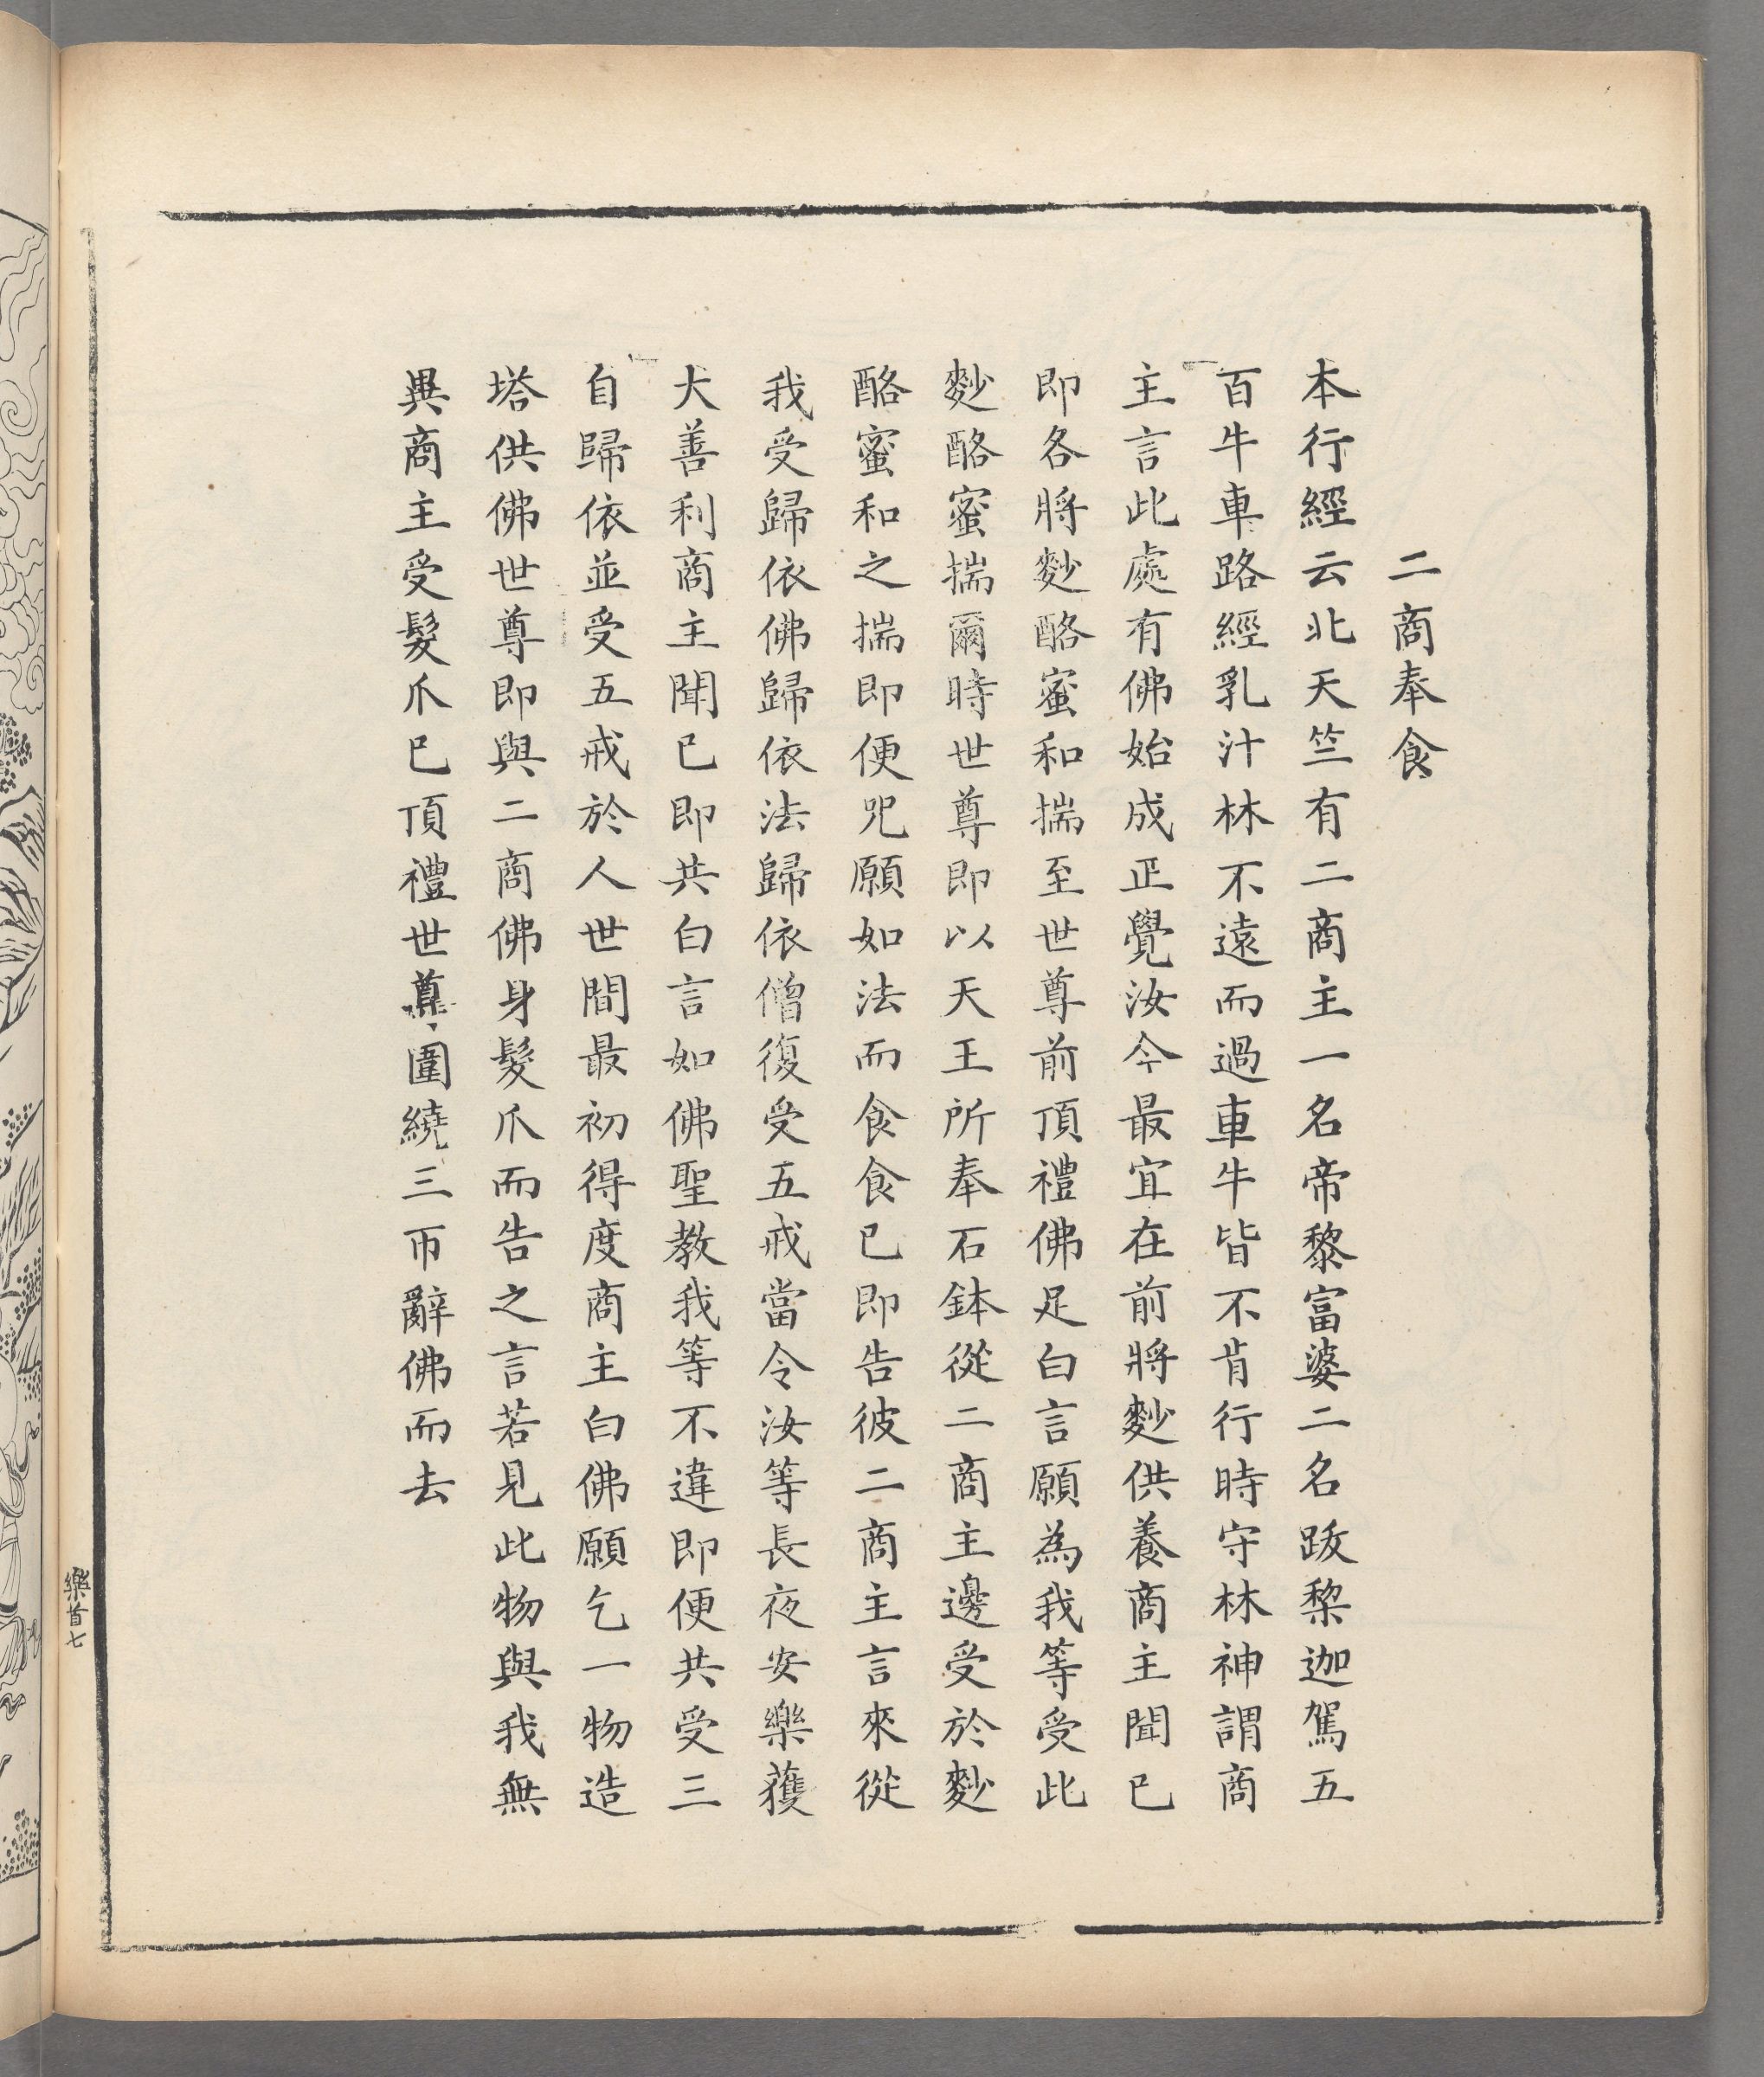 二商奉食
本行經云北天竺有二商主一名帝黎富婆二名跋棃迦駕五
百牛車路經乳汁林不遠而過車牛皆不肯行時守林神謂商
主言此處有佛始成正覺汝今最宜在前將麨供養商主聞已
即各將麨酪蜜和揣至世尊前頂禮佛足白言願為我等受此
麨酪蜜揣爾時世尊即以天王所奉石鉢從二商主邊受於麨
酪蜜和之揣即便咒願如法而食食已即告彼二商主言來從
我受歸依佛歸依法歸依僧復受五戒當令汝等長夜安樂獲
大善利商主聞已即共白言如佛聖教我等不違即便共受三
自歸依並受五戒於人世間最初得度商主白佛願乞一物造
塔供佛世尊即與二商佛身髮爪而告之言若見此物與我無
異商主受髮爪已頂禮世尊圍繞三帀辭佛而去
樂首七